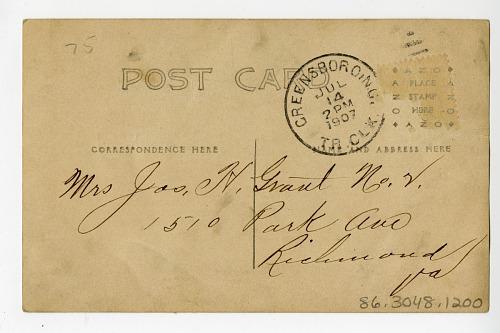 75
POST CARD
GREENSBORO, N.C.
JUL
14
2 PM
1907
TR. CLK.
AZO
PLACE
STAMP
HERE
AZO
CORRESPONDENCE HERE
NAME AND ADDRESS HERE
Mrs Jos. H. Grant No. 2.
1510 Park Ave
Richmond
Va
86.3048.1200